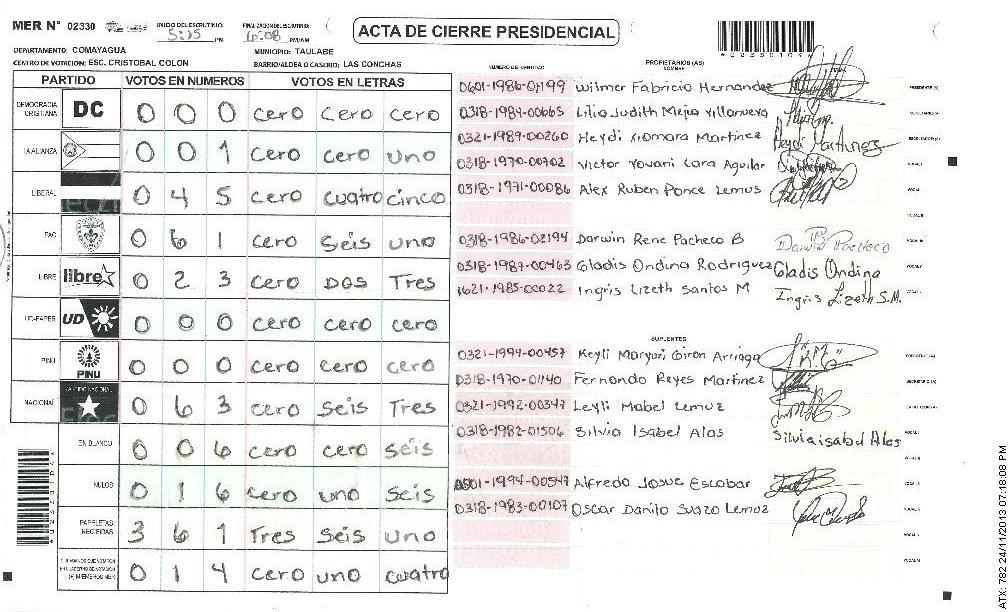 MER N° 02330
INICIO DEL ESCRUTINIO: 5:15 PM
FINALIZACION DEL ESCRUTINIO: 6:08 PM/AM
ACTA DE CIERRE PRESIDENCIAL
DEPARTAMENTO: COMAYAGUA
MUNICIPIO: TAULABE
CENTRO DE VOTACION: ESC. CRISTOBAL COLON
BARRIO/ALDEA O CASERIO: LAS CONCHAS
PARTIDO VOTOS EN NUMEROS VOTOS EN LETRAS
DEMOCRACIA CRISTIANA DC 0 0 0 cero cero cero
LA ALIANZA 0 0 1 cero cero uno
LIBERAL 0 4 5 cero cuatro cinco
PAC 0 6 1 cero seis uno
LIBRE libre 0 2 3 cero Dos Tres
UD-FAPER UD 0 0 0 cero cero cero
PINU PINU 0 0 0 cero cero cero
NACIONAL PARTIDO NACIONAL 0 6 3 cero seis Tres
EN BLANCO 0 0 6 cero cero seis
NULOS 0 1 6 cero uno seis
PAPELETAS RECIBIDAS 3 6 1 Tres seis uno
(+) MIEMBROS MER 0 1 4 cero uno cuatro
NUMERO DE IDENTIDAD PROPIETARIOS (AS) NOMBRE FIRMA
0601-1986-01199 Wilmer Fabricio Hernandez PRESIDENTE (A)
0318-1984-00665 Lilia Judith Mejia Villanueva SECRETARIO (A)
0321-1989-00260 Heydi Xiomara Martinez Heydi Martinez ESCRUTADOR (A)
0318-1970-00702 Victor Yovani Lara Aguilar VOCAL I
0318-1971-00086 Alex Ruben Ponce Lemus VOCAL II
VOCAL III
0318-1986-02194 Darwin Rene Pacheco B Darwin Pacheco VOCAL IV
0318-1987-00463 Gladis Ondina Rodriguez Gladis Ondina VOCAL V
1621-1985-00022 Ingris Lizeth Santos M Ingris Lizeth S.M.
SUPLENTES
0321-1994-00457 Keyli Maryuri Giron Arriaga PRESIDENTE (A)
0318-1970-01140 Fernando Reyes Martinez SECRETARIO (A)
0321-1992-00347 Leyli Mabel Lemuz ESCRUTADOR (A)
0318-1982-01506 Silvia Isabel Alas Silvia isabel Alas VOCAL I
VOCAL II
0501-1994-00547 Alfredo Josue Escobar VOCAL III
0318-1983-00107 Oscar Danilo Suazo Lemuz VOCAL IV
VOCAL V
VOCAL VI
ATX: 782 24/11/2013 07:18:08 PM